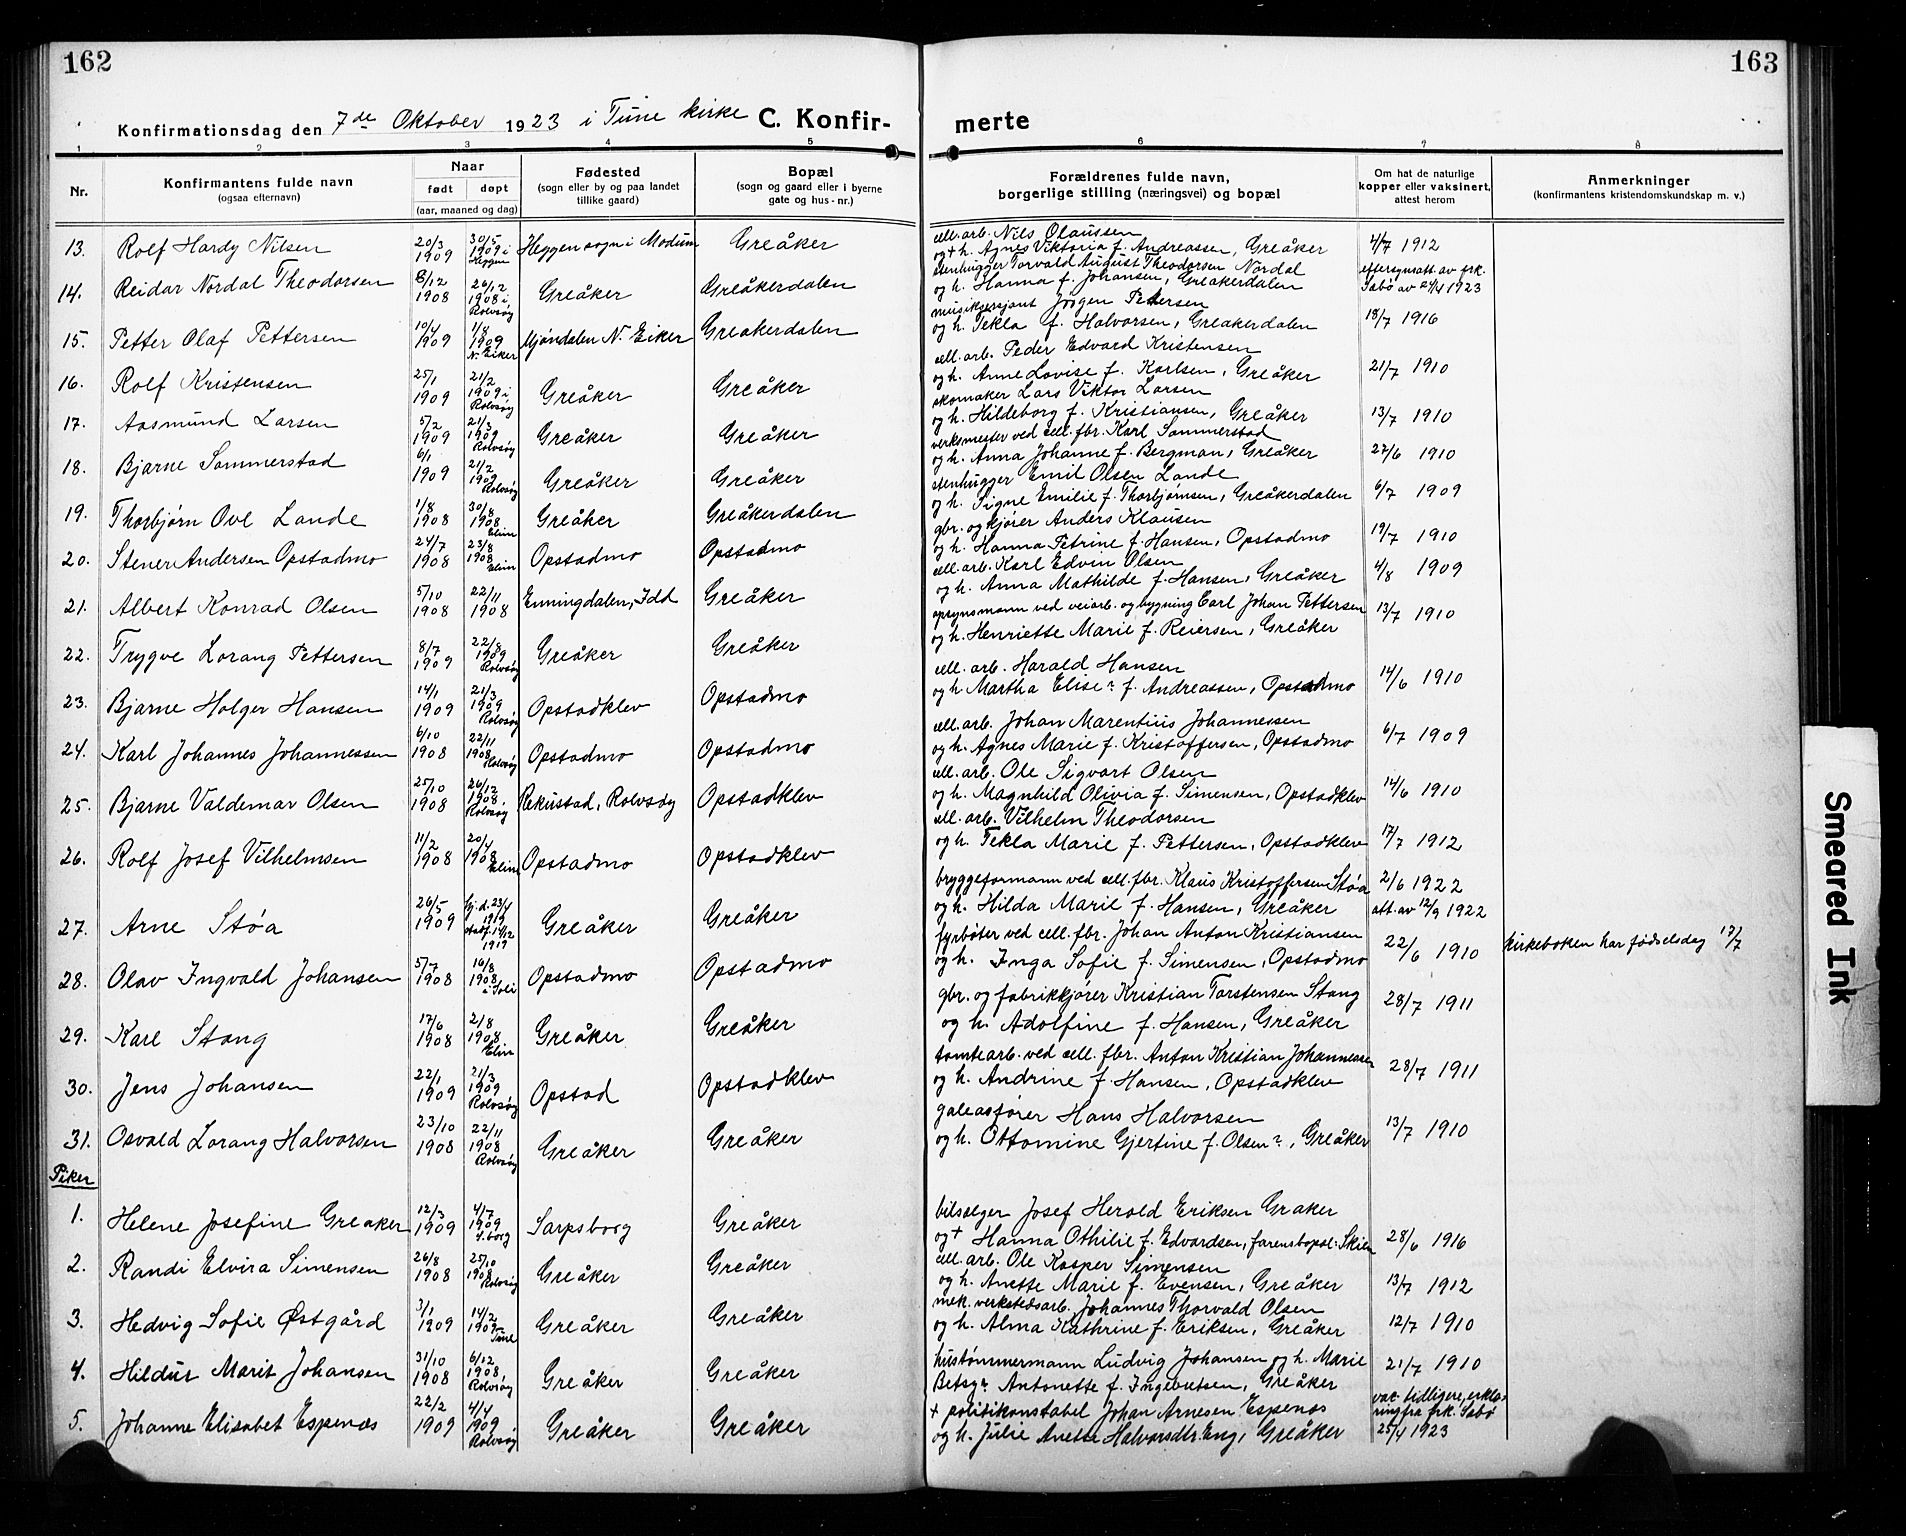 162
163
Konfirmationsdag den 7de Oktober 1923 i Tune kirke C. Konfir-
merte
1 2 3 4 5 6 7 8
Nr. Konfirmantens fulde navn (ogsaa efternavn) Naar født døpt (aar, maaned og dag) Fødested (sogn eller by og paa landet tillike gaard) Bopæl (sogn og gaard eller i byerne gate og hus-nr.) Forældrenes fulde navn, borgerlige stilling (næringsvei) og bopæl Om hat de naturlige kopper eller vaksinert, attest herom Anmerkninger (konfirmantens kristendomskundskap m. v.)
13. Rolf Hardy Nilsen 20/3 1909 30/5 1909 i Heggen Heggen sogn i Modum Greåker cell. arb. Nils Olaussen og + h. Agnes Viktoria f. Andreassen, Greåker 4/7 1912
14. Reidar Nordal Theodorsen 8/12 1908 26/12 1908 i Rolvsøy Greåker Greåkerdalen stenhugger Torvald August Theodorsen Nordal og h. Hanna f. Johansen, Greåkerdalen eftersynsatt. av frk. Sabø av 24/4 1923
15. Petter Olaf Pettersen 10/4 1909 1/8 1909 N. Eiker Mjøndalen N. Eiker Greåkerdalen musiksersjant Jørgen Pettersen og h. Tekla f. Halvorsen, Greåkerdalen 18/7 1916
16. Rolf Kristensen 25/1 1909 21/2 1909 i Rolvsøy Greåker Greåker cell. arb. Peder Edvard Kristensen og h. Anne Lovise f. Karlsen, Greåker 21/7 1910
17. Aasmund Larsen 5/2 1909 21/3 1909 Rolvsøy Greåker Greåker skomaker Lars Viktor Larsen og h. Hildeborg f. Kristiansen, Greåker 13/7 1910
18. Bjarne Sommerstad 6/1 1909 21/2 1909 Rolvsøy Greåker Greåker verksmester ved cell. fbr. Karl Sommerstad og h. Anna Johanne f. Bergman, Greåker 27/6 1910
19. Thorbjørn Ove Lande 1/8 1908 30/8 1908 Elim Greåker Greåkerdalen stenhugger Emil Olsen Lande og h. Signe Emilie f. Thorbjørnsen, Greåkerdalen 6/7 1909
20. Stener Andersen Opstadmo 24/7 1908 23/8 1908 Elim Opstadmo Opstadmo gbr. og kjører Anders Klausen og h. Hanna Petrine f. Hansen, Opstadmo 19/7 1910
21. Albert Konrad Olsen 5/10 1908 22/11 1908 Enningdalen, Idd Greåker cell. arb. Karl Edvin Olsen og h. Anna Mathilde f. Hansen, Greåker 4/8 1909
22. Trygve Lorang Pettersen 8/7 1909 22/8 1909 Rolvsøy Greåker Greåker opsynsmann ved veiarb. og bygning Carl Johan Pettersen og h. Henriette Marie f. Reiersen, Greåker 13/7 1910
23. Bjarne Holger Hansen 14/1 1909 21/3 1909 Rolvsøy Opstadklev Opstadmo cell. arb. Harald Hansen og h. Martha Elise? f. Andreassen, Opstadmo 14/6 1910
24. Karl Johannes Johannessen 6/10 1908 22/11 1908 Rolvsøy Opstadmo Opstadmo cell. arb. Johan Marentius Johannessen og h. Agnes Marie f. Kristoffersen, Opstadmo 6/7 1909
25. Bjarne Valdemar Olsen 25/10 1908 26/12 1908 Rolvsøy Rekustad, Rolvsøy Opstadklev cell. arb. Ole Sigvart Olsen og h. Magnhild Olivia f. Simensen, Opstadklev 14/6 1910
26. Rolf Josef Vilhelmsen 11/2 1908 20/4 1908 Elim Opstadmo Opstadklev cell. arb. Vilhelm Theodorsen og h. Tekla Marie f. Pettersen, Opstadklev 17/7 1912
27. Arne Støa 26/5 1909 hj.d. 23/4 1919 stadf. 14/12 1919 Greåker Greåker bryggeformann ved cell. fbr. Klaus Kristoffersen Støa og h. Hilda Marie f. Hansen, Greåker 2/6 1922 att. av 12/9 1922
28. Olav Ingvald Johansen 5/7 1908 16/8 1908 i Soli Opstadmo Opstadmo fyrbøter ved cell. fbr. Johan Anton Kristiansen og h. Inga Sofie f. Simensen, Opstadmo 22/6 1910 kirkeboken har fødselsdag 17/7
29. Karl Stang 17/6 1908 2/8 1908 Elim Greåker Greåker gbr. og fabrikkjører Kristian Torstensen Stang og h. Adolfine f. Hansen, Greåker 28/7 1911
30. Jens Johansen 22/1 1909 21/3 1909 Rolvsøy Opstad Opstadklev tomtearb. ved cell. fbr. Anton Kristian Johannessen og h. Andrine f. Hansen, Opstadklev 28/7 1911
31. Osvald Lorang Halvorsen 23/10 1908 22/11 1908 Rolvsøy Greåker Greåker galeasfører Hans Halvorsen og h. Ottomine Gjertine f. Olsen?, Greåker 13/7 1910
Piker
1. Helene Josefine Greaker 12/3 1909 4/7 1909 S.borg Sarpsborg Greåker bilsælger Josef Herold Eriksen Graker og + Hanna Othilie f. Edvardsen, farens bopæl: Skien 28/6 1916
2. Randi Elvira Simensen 26/8 1908 25/10 1908 Rolvsøy Greåker Greåker cell. arb. Ole Kasper Simensen og h. Anette Marie f. Evensen, Greåker 13/7 1912
3. Hedvig Sofie Østgård 3/1 1909 14/2 1909 Tune Greåker Greåker mek. verkstedsarb. Johannes Thorvald Olsen og h. Alma Kathrine f. Eriksen, Greåker 12/7 1910
4. Hildur Marie Johansen 31/10 1908 6/12 1908 Rolvsøy Greåker Greåker hustømmermann Ludvig Johansen og h. Marie Betsy? Antonette f. Ingebretsen, Greåker 21/7 1910
5. Johanne Elisabet Espenæs 22/2 1909 4/4 1909 Rolvsøy Greåker Greåker + politikonstabel Johan Arnesen Espenæs og h. Julie Anette Halvorsdtr. Eng, Greåker vac. tidligere, erklæring fra frk. Sabø 25/4 1923
Smeared Ink